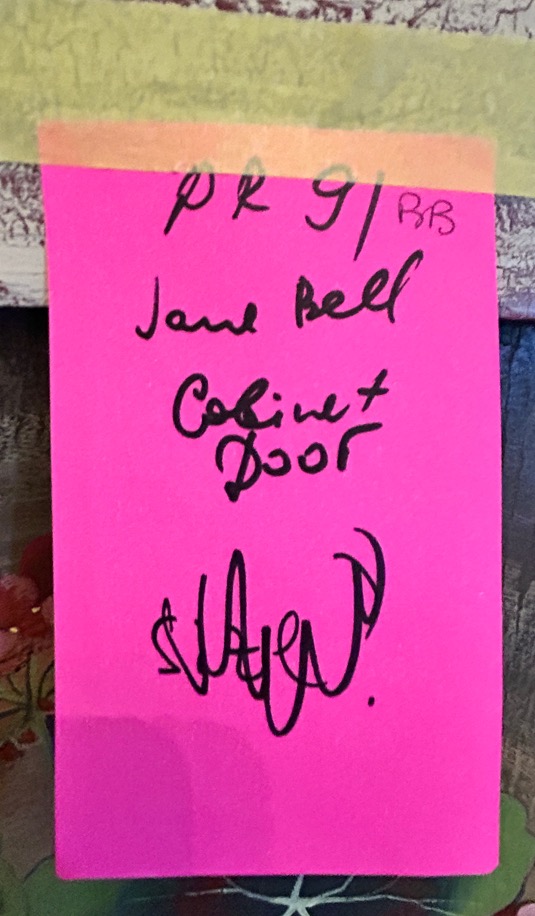 DR 91 BB
Jane Bell
Cabinet
Door